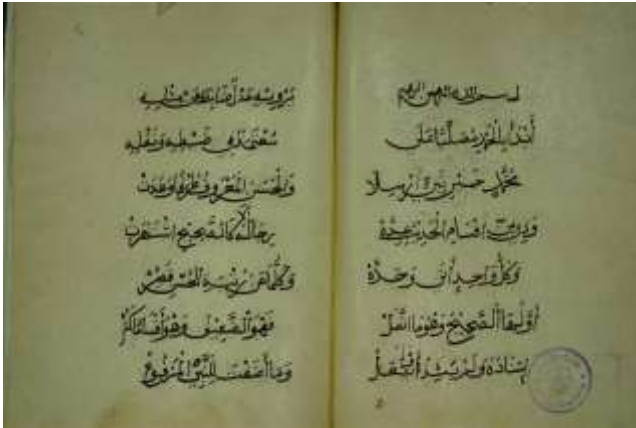 بسم الله الرحمن الرحيم
أبدأ بالحمد مصليا على
محمد خير نبي أرسلا
وذي من أقسام الحديث عدة
وكل واحد أتى وحده
أولها الصحيح وهو ما اتصل
إسناده ولم يشذ أو يعل
يرويه عدل ضابط عن مثله
معتمد في ضبطه ونقله
والحسن المعروف طرقا وغدت
رجاله لا كالصحيح اشتهرت
وكلما عن رتبة الحسن قصر
فهو الضعيف وهو أقساما كثر
وما أضفت للنبي المرفوع